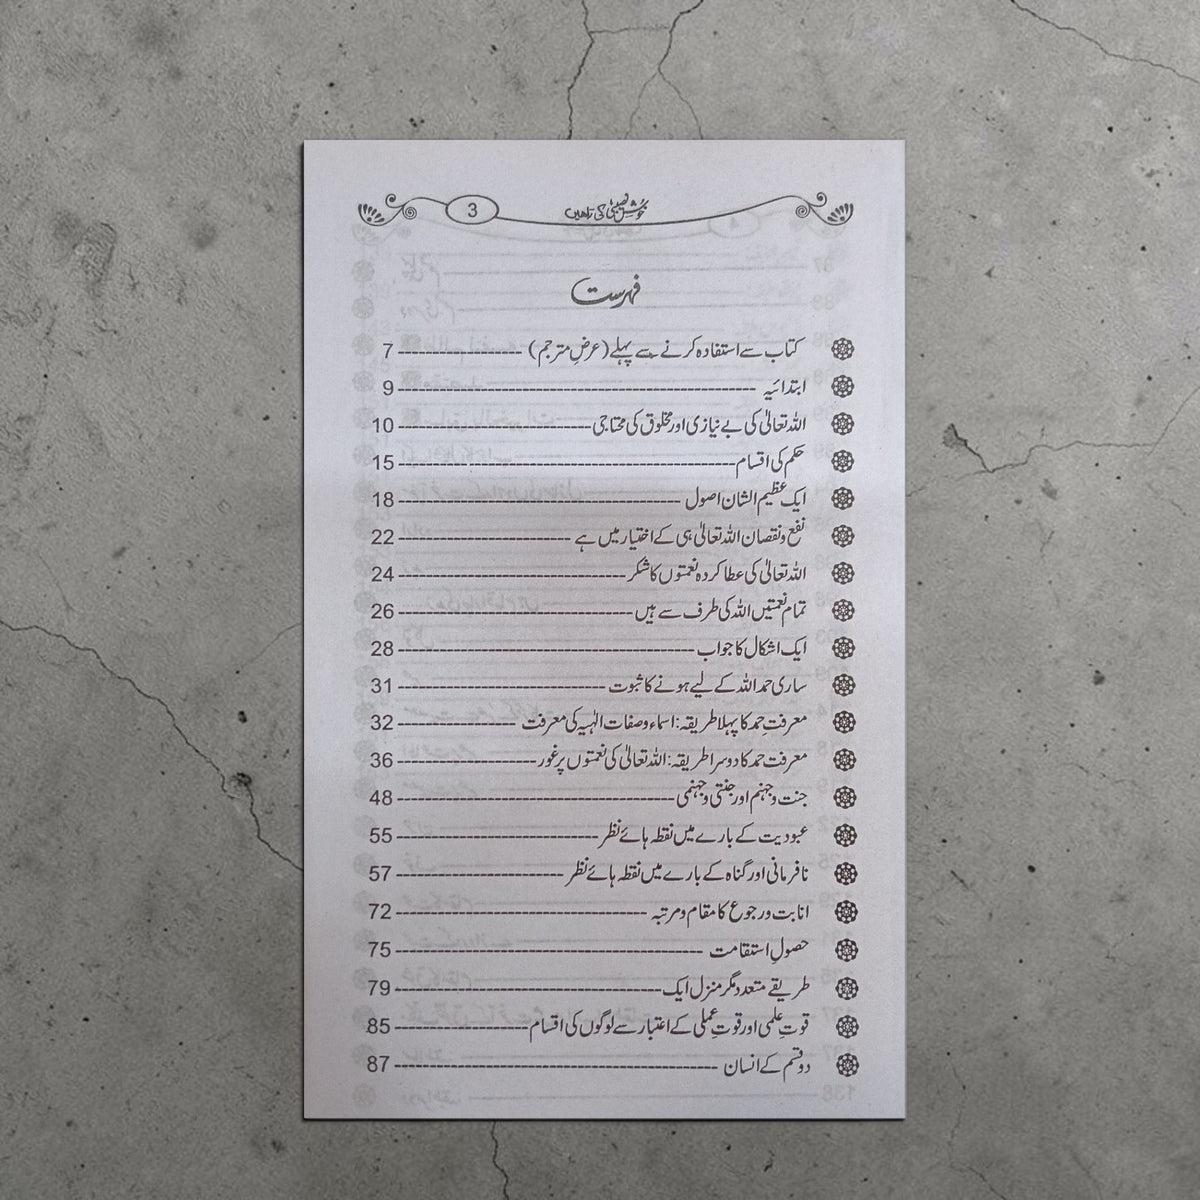 خوش نصیبی کی راہیں 3
فہرست
کتاب سے استفادہ کرنے سے پہلے (عرضِ مترجم) 7
ابتدائیہ 9
اللہ تعالیٰ کی بے نیازی اور مخلوق کی محتاجی 10
حکم کی اقسام 15
ایک عظیم الشان اصول 18
نفع و نقصان اللہ تعالیٰ ہی کے اختیار میں ہے 22
اللہ تعالیٰ کی عطا کردہ نعمتوں کا شکر 24
تمام نعمتیں اللہ کی طرف سے ہیں 26
ایک اشکال کا جواب 28
ساری حمد اللہ کے لیے ہونے کا ثبوت 31
معرفتِ حمد کا پہلا طریقہ: اسماء و صفات الٰہیہ کی معرفت 32
معرفت حمد کا دوسرا طریقہ: اللہ تعالیٰ کی نعمتوں پر غور 36
جنت و جہنم اور جنتی و جہنمی 48
عبودیت کے بارے میں نقطہ ہائے نظر 55
نافرمانی اور گناہ کے بارے میں نقطہ ہائے نظر 57
انابت و رجوع کا مقام و مرتبہ 72
حصولِ استقامت 75
طریقے متعدد مگر منزل ایک 79
قوتِ علمی اور قوتِ عملی کے اعتبار سے لوگوں کی اقسام 85
دو قسم کے انسان 87